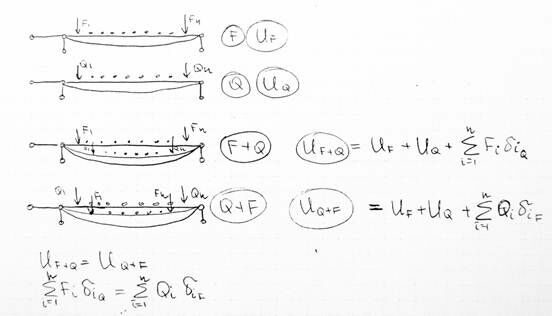 F₁ Fₙ F U_F
Q₁ Qₙ Q U_Q
F₁ Fₙ Q₁ Qₙ F+Q U_{F+Q} = U_F + U_Q + \sum_{i=1}^{n} F_i δ_{iQ}
Q₁ F₁ Fₙ Qₙ Q+F U_{Q+F} = U_F + U_Q + \sum_{i=1}^{n} Q_i δ_{iF}
U_{F+Q} = U_{Q+F}
\sum_{i=1}^{n} F_i δ_{iQ} = \sum_{i=1}^{n} Q_i δ_{iF}